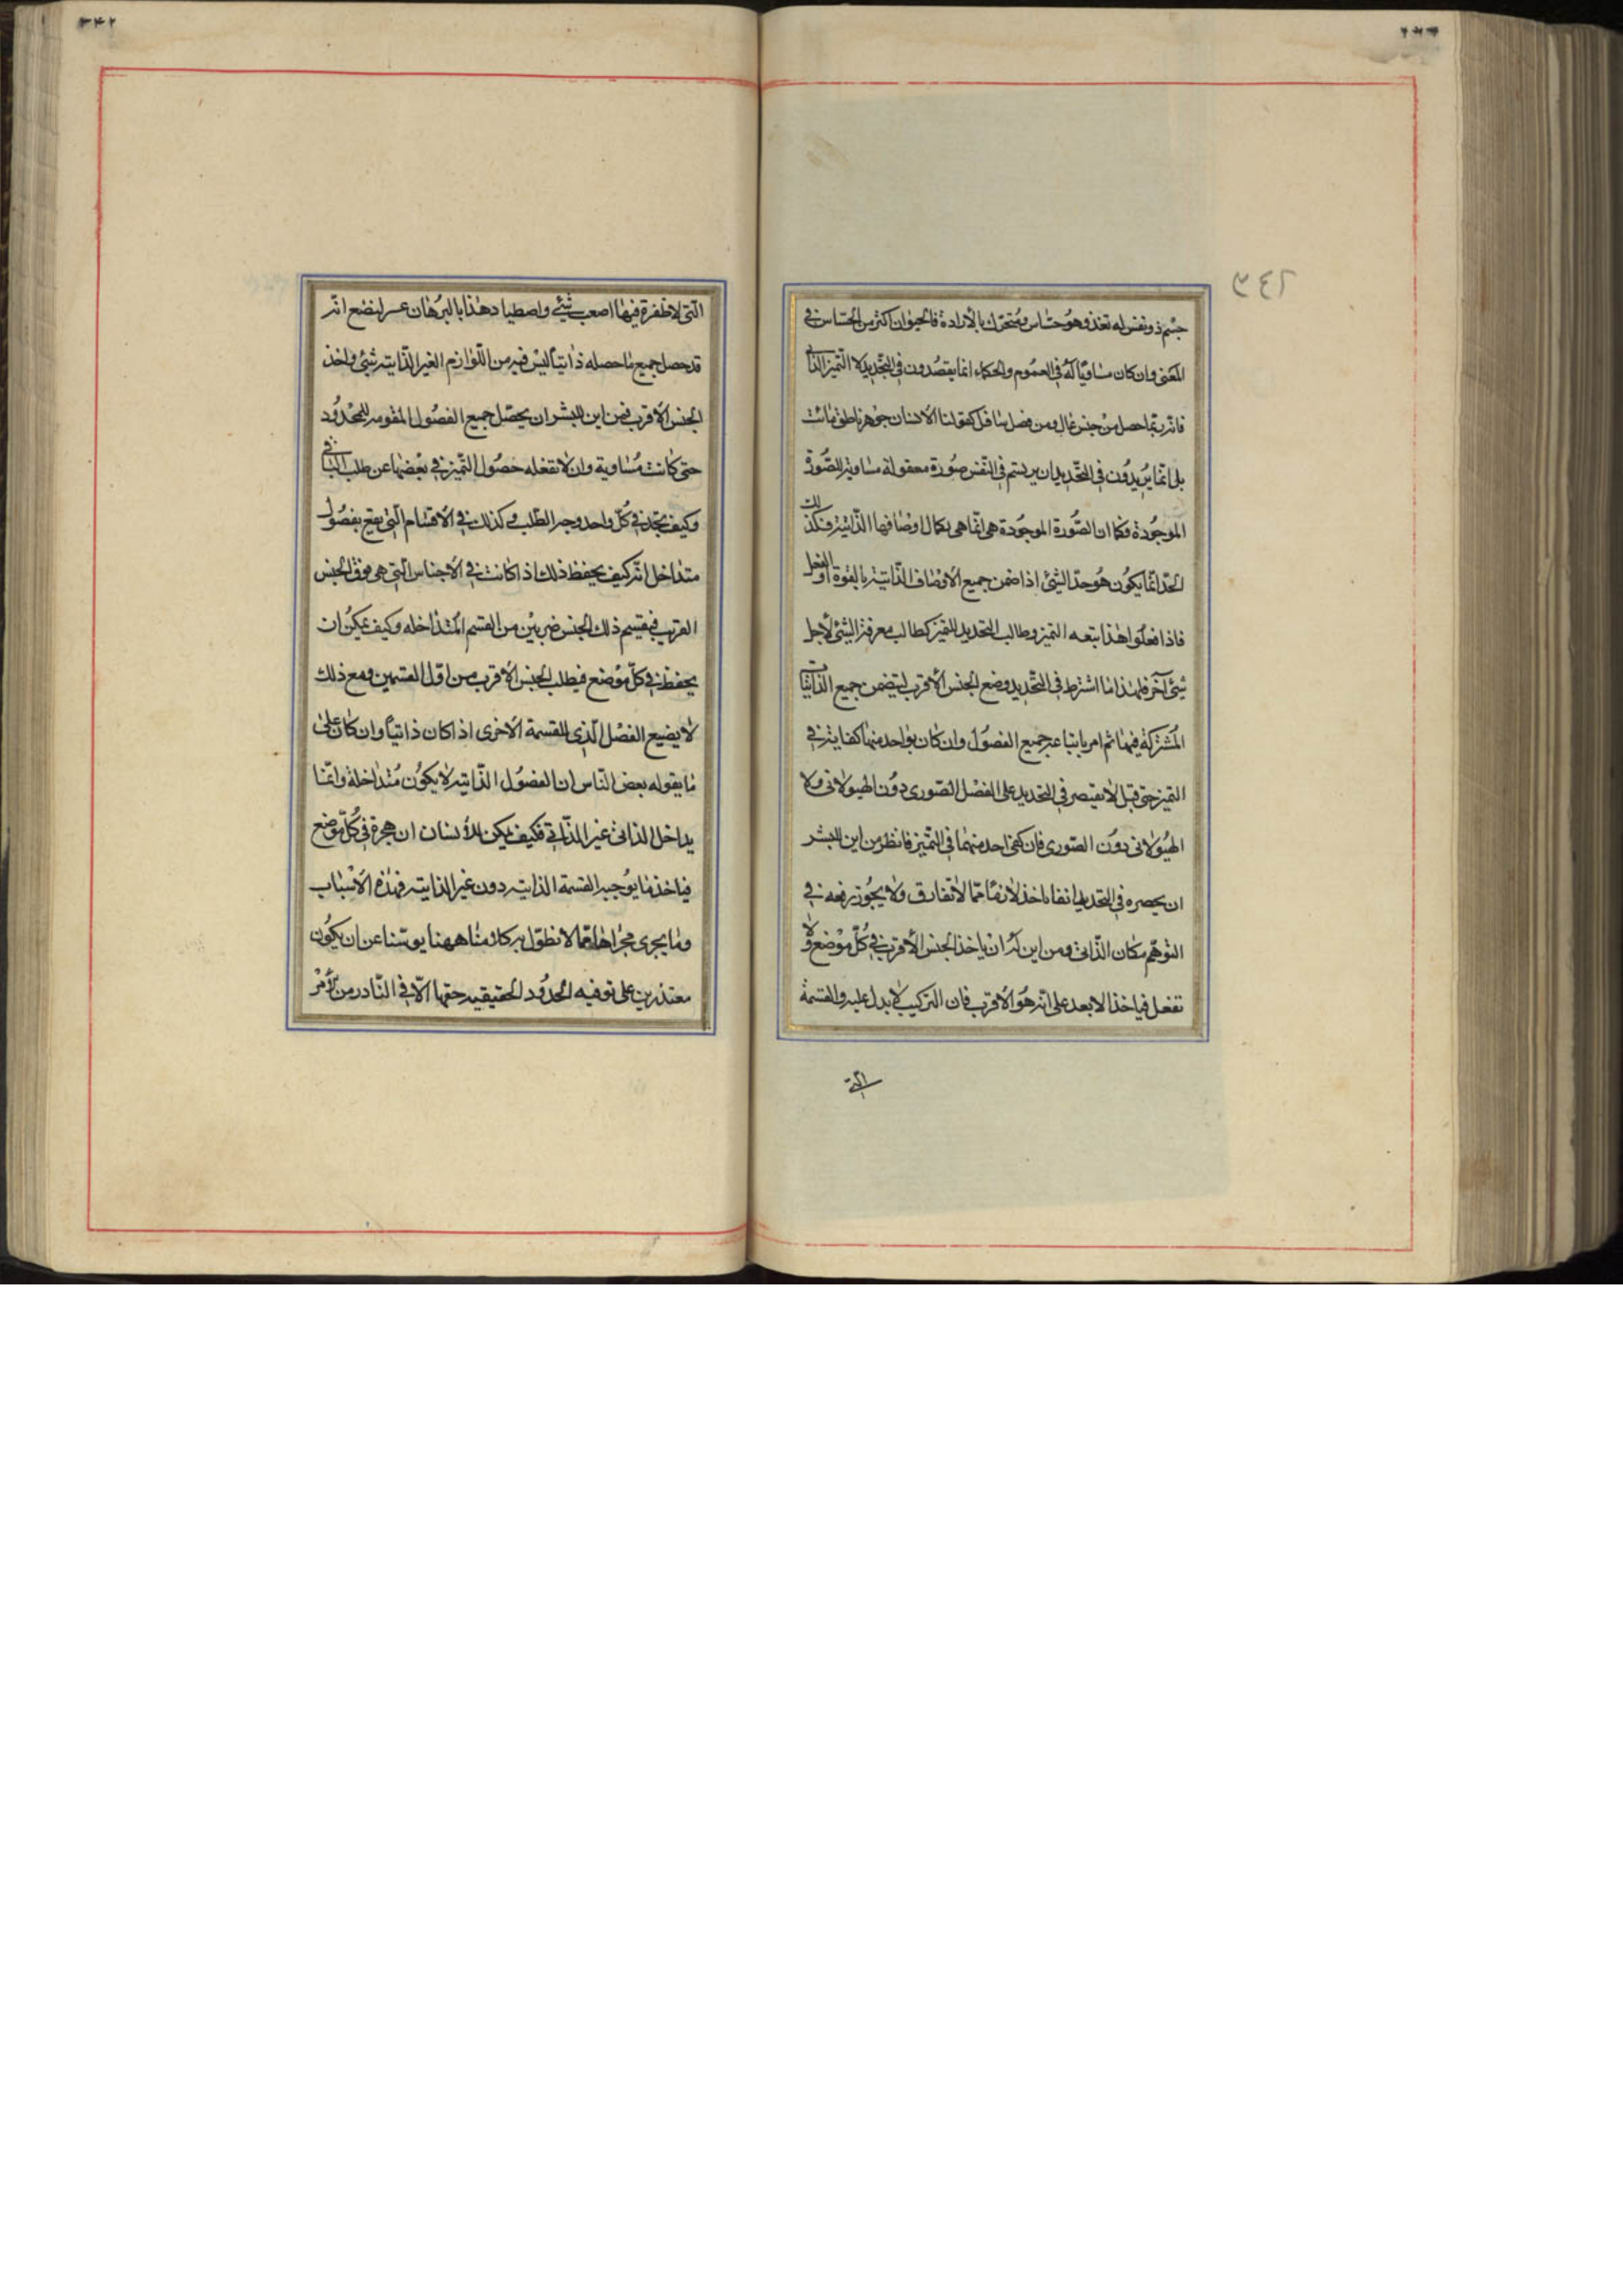 جسْم ذو نفس له تغذ وهو حسّاس ومتحرّك بالارادة فالحيوان اكثر من الحسّاس في
المعنى وان كان مساويًا له في العموم والحكماء انما يقصدون في التحديد لا التميز الذاتي
فانه ربما حصل من جنس عال ومن فصل سافل كقولنا الانسان جوهر ناطق مائت
بل انّما يُريدُون في التحديد ان يرتسم في النفس صورة معقولة مساوية للصّورة
الموجُودة فكما ان الصّورة الموجُودة هى انّما هى بكمال اوصافها الذّاتيّة فكذلك
الحدّ انّما يكُون هو حدّ الشئ اذا ضمن جميع الاوصاف الذّاتية بالقوة او الفعل
فاذا فعلوا هذا يتبعه التميز وطالب التحديد للتميز كطالب معرفة الشئ لاجل
شئ آخر فلهذا ما اشترط في التحديد وضع الجنس الاقرب ليتضمن جميع الذاتيات
المُشتركة فيها ثم امر باتباعه جميع الفصول وان كان بواحد منها كفاية في
التميز حتى قيل لا يقتصر في التحديد على الفصل الصّورى دون الهيولانى ولا
الهيُولانى دوُن الصّورى فان كفى احد منهما في التميز فانظر من اين للبشر
ان يحصره في التحديد انفا ياخذ لازمًا ممّا لا تفارق ولا يجُوز رفعه في
التوهّم مكان الذّاتى ومن اين له ان ياخذ الجنس الاقرب في كلّ موضع ولا
تغفل فياخذ الابعد على انه هُو الاقرب فان التركيب لا يدل عليه والقسمة
التى
التى لا ظفرة فيها اصعب شئ واصطياد هذا بالبرهان عسر لنضع انّه
قد حصل جميع ما حصله ذاتياً ليس فيه من اللّوازم الغير الذّاتية شئ واخذ
الجنس الاقرب فمن اين للبشر ان يحصّل جميع الفصُول المقومه للمحدُود
حتى كانت مُساوية وان لا تغفله حصُول التّميز في بعضها عن طلب الباقي
وكيف يجد في كُلّ واحد وجه الطّلب وكذلك في الاقسام الّتى يقع بفصُول
متداخل انّه كيف يحفظ ذلك اذا كانت في الاجناس الّتى هى فوق الجنس
القريب فيقسم ذلك الجنس ضربيْن من القسم المُتداخله وكيف يمكن ان
يحفظ في كلّ موضع فيطلب الجنس الاقرب من اوّل القسمين ومع ذلك
لا يضيع الفصْل الّذى للقسمة الاخرى اذ اكان ذاتياً وان كان على
ما يقوله بعض النّاس ان الفصُول الذّاتيه لا يكُون مُتداخلة وانّما
يداخل الذاتى غير الذّاتى فكيف يمكن للأنسان ان هجرة في كُلّ موضع
فياخذ ما يوُجبه القسمة الذاتيه دون غير الذاتيته فهذه الاسْباب
وما يجرى مجراها ممّا لا نطوّل به كلامنا ههنا يويسنا عن ان يكُون
مقتدرين على توفيه الحدُود الحقيقيه حقها الّا في النّادر من الأمر